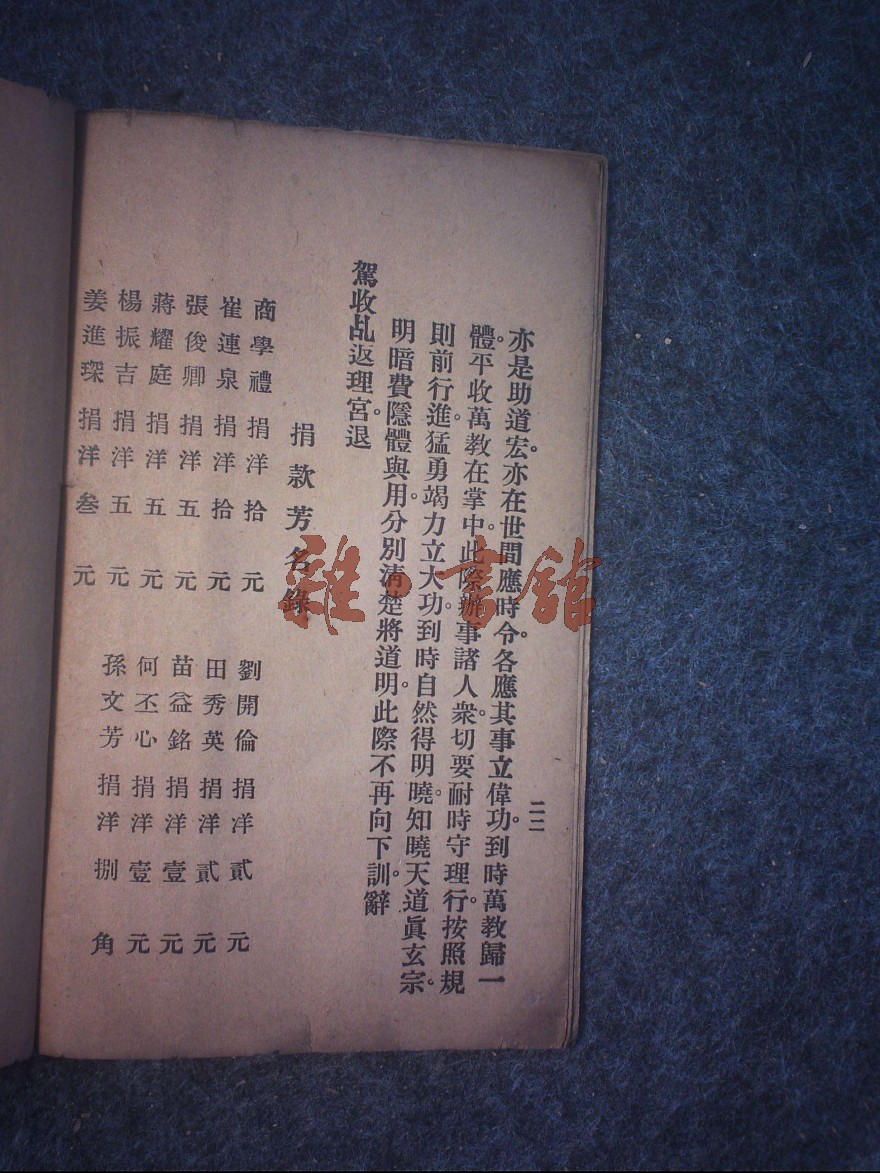 亦是助道宏。亦在世間應時令。各應其事立偉功。到時萬教歸一
體。平收萬教在掌中。此際辦事諸人衆。切要耐時守理行。按照規
則前行進。猛勇竭力立大功。到時自然得明曉。知曉天道眞玄宗。
明暗費隱體與用。分別淸楚將道明。此際不再向下訓。辭
駕收乩返理宮。退
捐款芳名錄
商學禮 捐洋拾元 劉開倫 捐洋貳元
崔連泉 捐洋拾元 田秀英 捐洋貳元
張俊卿 捐洋五元 苗益銘 捐洋壹元
蔣耀庭 捐洋五元 何丕心 捐洋壹元
楊振吉 捐洋五元 孫文芳 捐洋捌角
姜進琛 捐洋叁元
二二
雜·書館